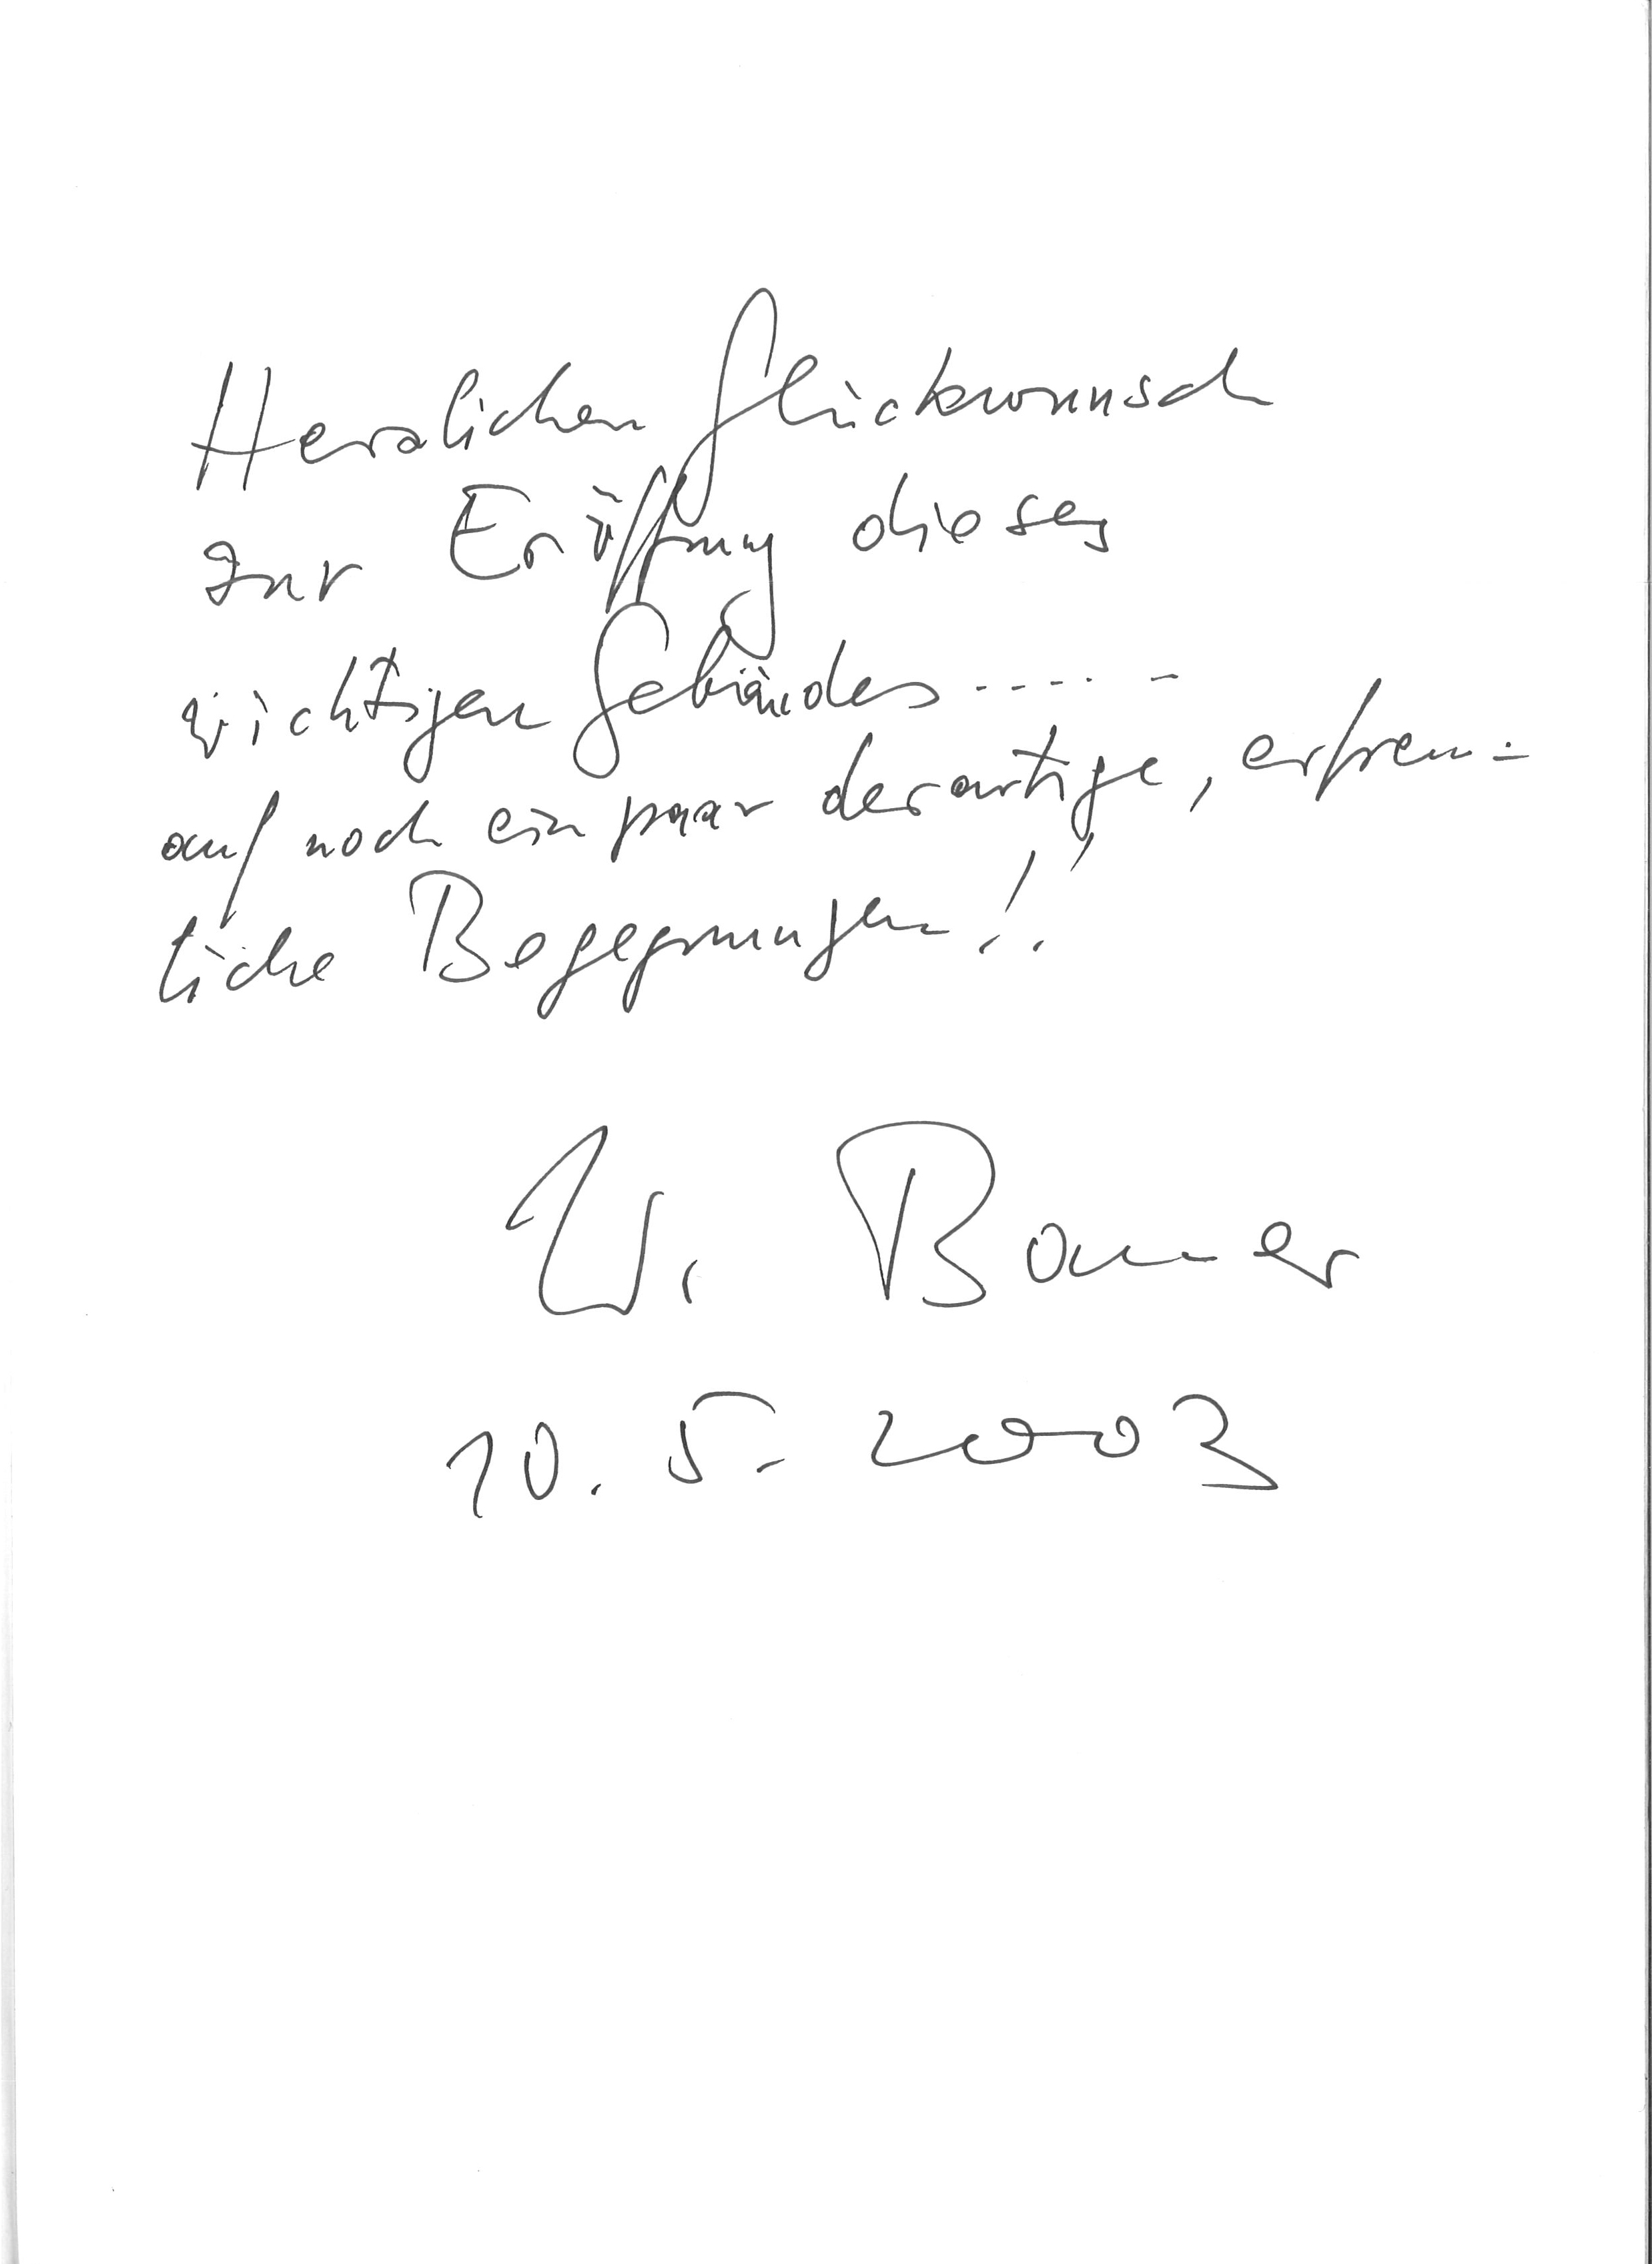 Herzlichen Glückwunsch
zur Eröffnung dieses
wichtigen Gebäudes ..... -
auf noch ein paar derartige, erfreu=
liche Begegnungen!!
W. Bauer
10. 5. 2003